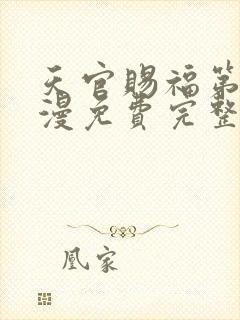 天官赐福第
漫免费完整
凰家